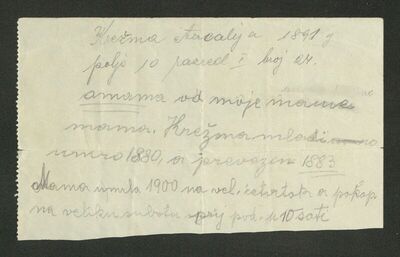 Krežma Natalija 1891 g
polje 10 razred I broj 24.
amama od moje mame
mama. Krežma mladi
umro 1880, a prevožen 1883
Mama umrla 1900 na vel. četvrtak a pokop
na veliku subotu prij pod. u 10 sati